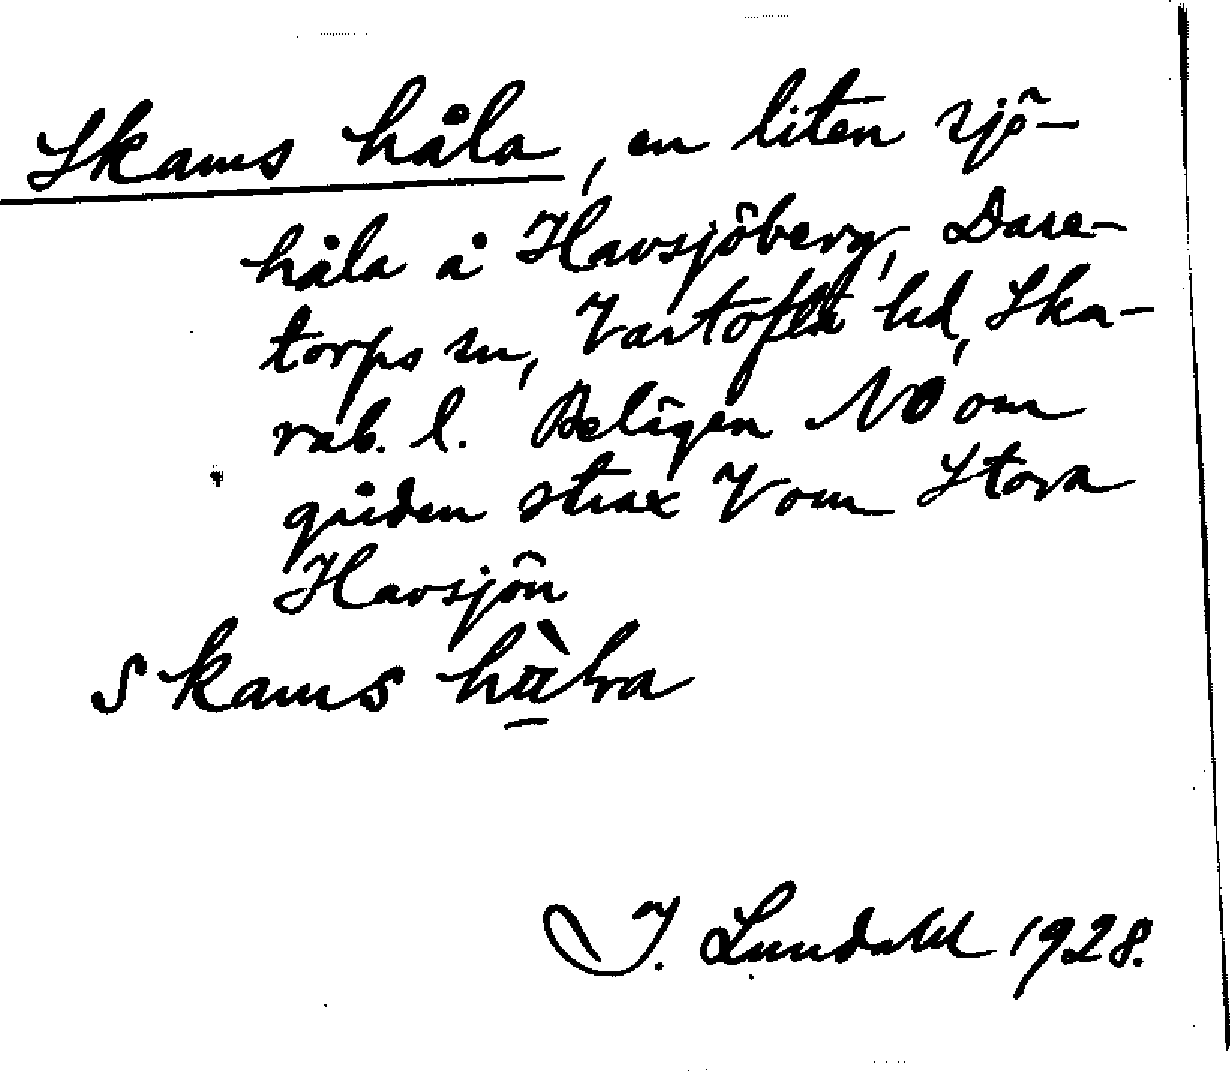 Skams håla, en liten sjö-
håla å Havsjöberg, Dare-
torps sn, Vartofta hd, Ska-
rab. l. Belägen NO om
gården strax V om Stora
Havsjön
skams
I. Lundahl 1928.